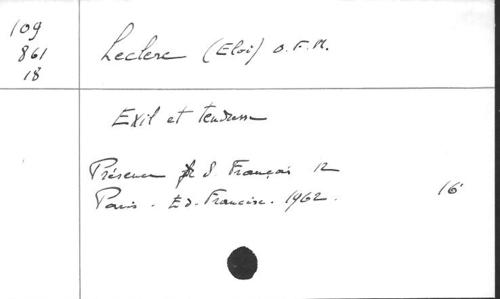 109
861
18
Leclerc (Eloi) O.F.M.
Exil et tendresse
Présence S François 12
Paris - Ed. Francisc. 1962. 16°